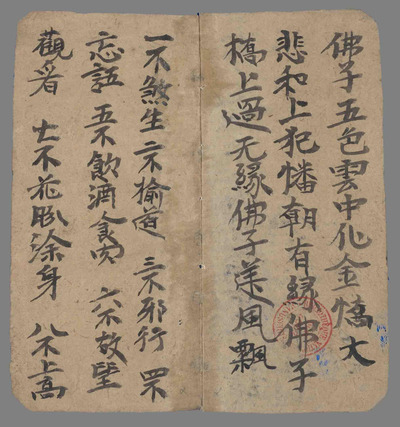 佛子五色雲中化金憍大
悲和上犯幡朝有緣佛子
橋上過无緣佛子送風飄
一不煞生 二不榆道 三不邪行 四不
忘語 五不飲酒食肉 六不故望
觀看 七不花卧塗身 八不上高